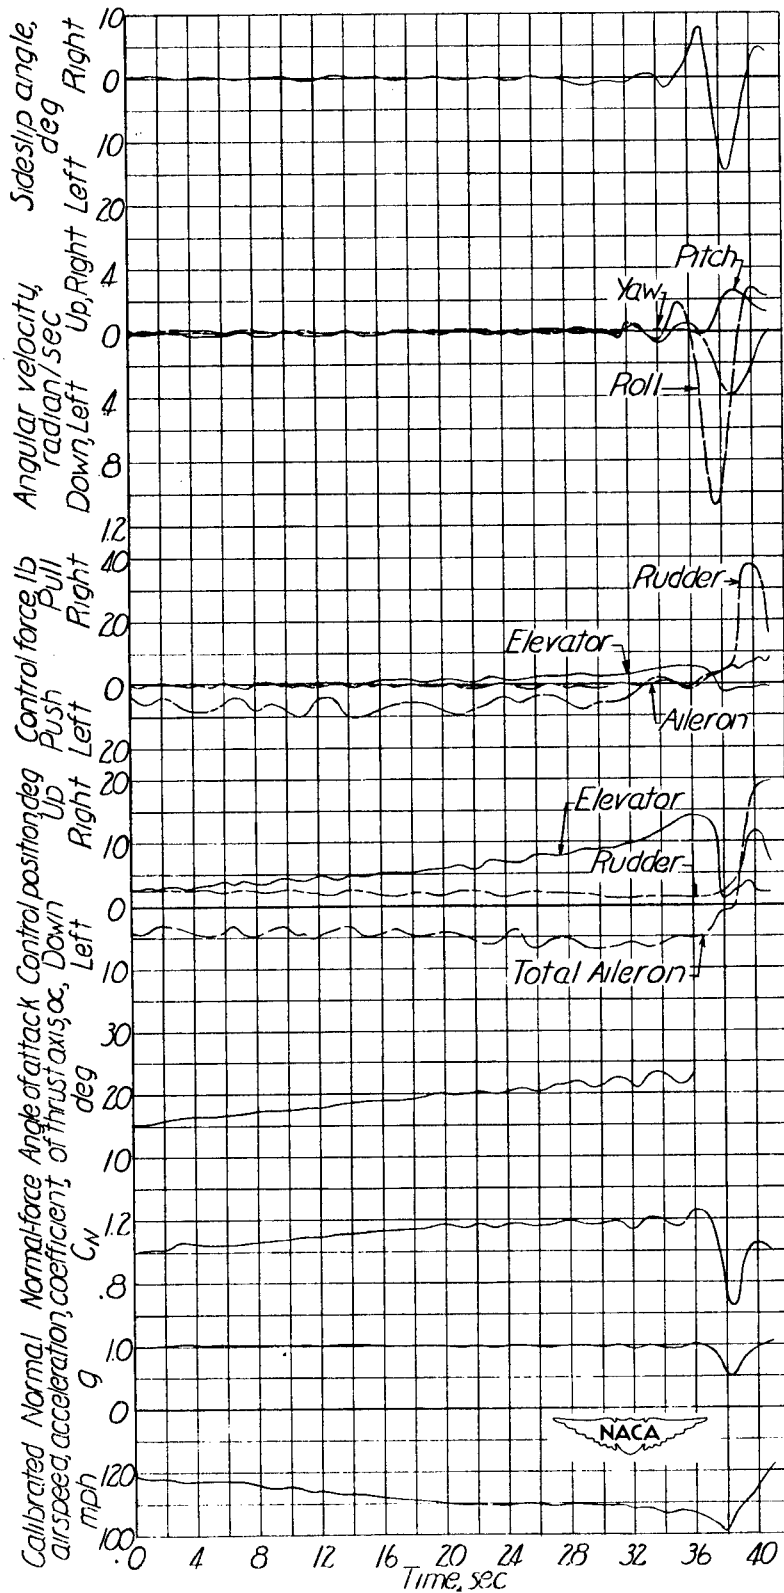 Sideslip angle, deg
Right
Left
10
0
10
20
Angular velocity, radian/sec
Up, Right
Down, Left
.4
0
.4
.8
1.2
Pitch
Yaw
Roll
Control force, lb
Pull Right
Push Left
40
20
0
20
Rudder
Elevator
Aileron
Control position, deg
Up Right
Down Left
20
10
0
10
Elevator
Rudder
Total Aileron
Angle of attack of thrust axis, α, deg
30
20
10
Normal-force coefficient, CN
1.2
.8
Normal acceleration, g
1.0
0
NACA
Calibrated airspeed, mph
120
100
0 4 8 12 16 20 24 28 32 36 40
Time, sec